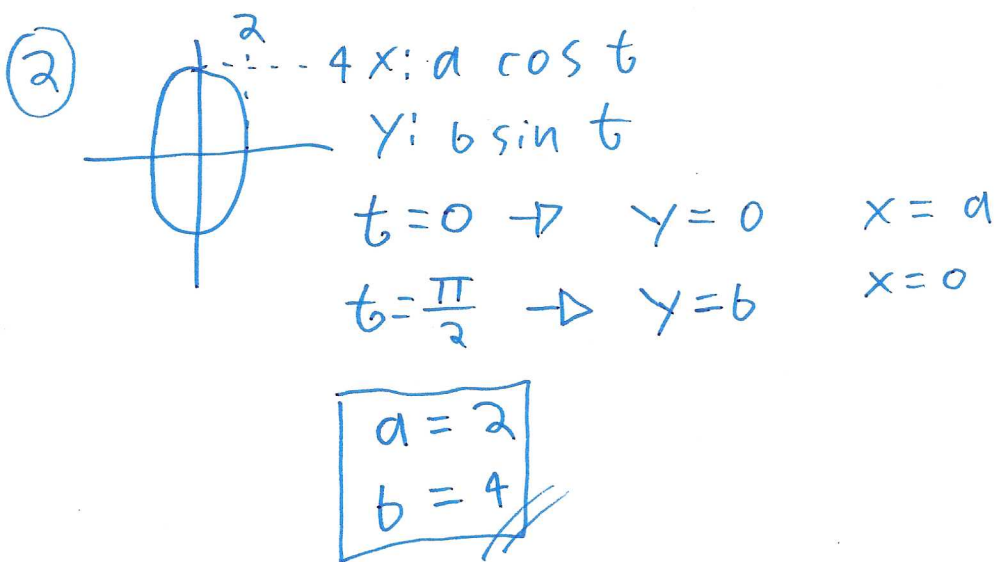 ②
2
4 x: a cos t
y: b sin t
t = 0 → y = 0 x = a
t = π/2 → y = b x = 0
a = 2
b = 4